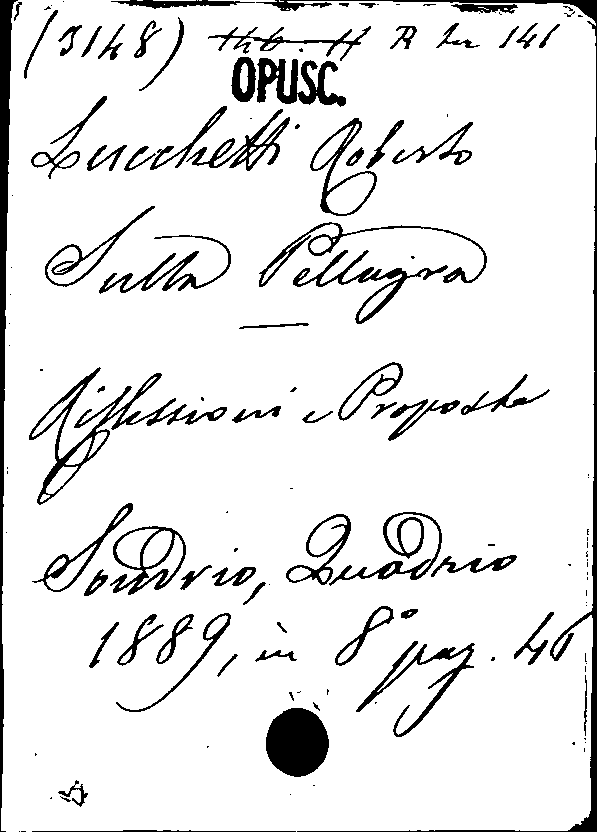 (3148) R ter 141
OPUSC.
Lucchetti Roberto
Sulla Pellagra
Riflessioni e Proposte
Sondrio, Quadrio
1889, in 8° pag. 46